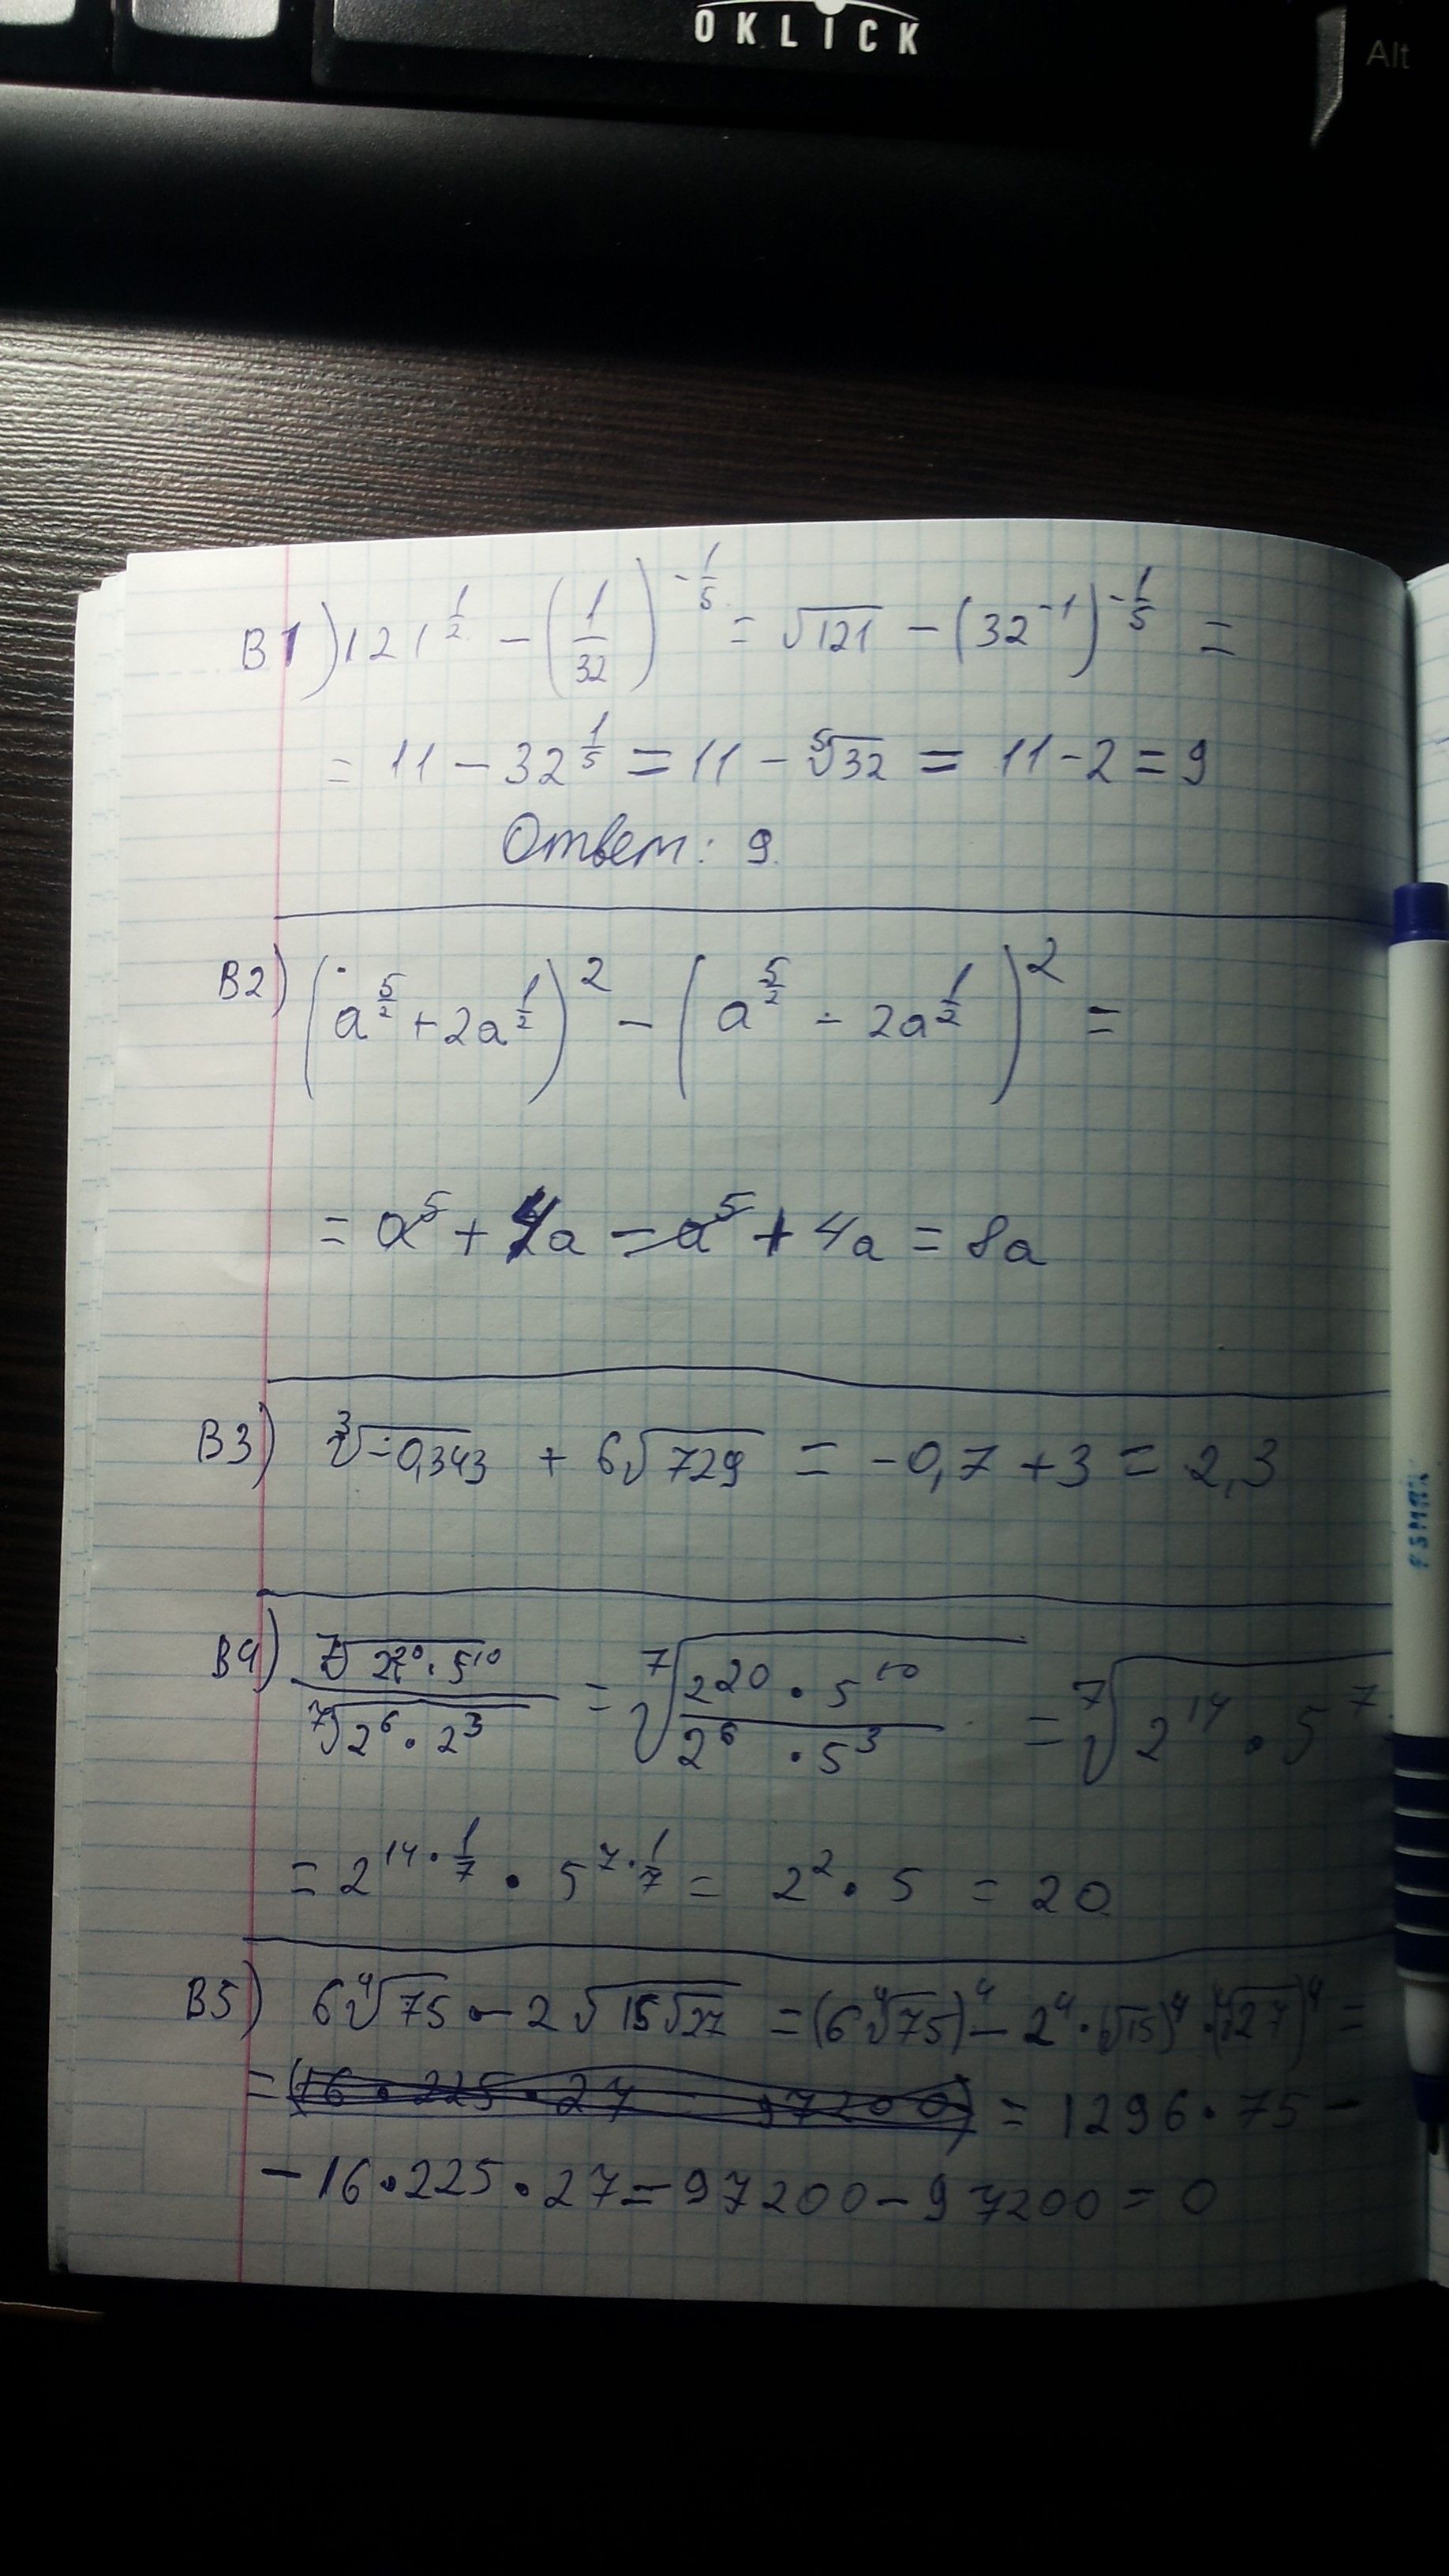 OKLICK
Alt
B1) 121^(1/2) - (1/32)^(-1/5) = √121 - (32^(-1))^(-1/5) =
= 11 - 32^(1/5) = 11 - ⁵√32 = 11 - 2 = 9
Ответ: 9.
B2) (a^(5/2) + 2a^(1/2))^2 - (a^(5/2) - 2a^(1/2))^2 =
= a^5 + 4a - a^5 + 4a = 8a
B3) ³√-0,343 + 6√729 = -0,7 + 3 = 2,3
B4) ⁷√(2^20 · 5^10) / ⁷√(2^6 · 2^3) = ⁷√(2^20 · 5^10 / 2^6 · 5^3) = ⁷√(2^14 · 5^7)
= 2^(14 · 1/7) · 5^(7 · 1/7) = 2^2 · 5 = 20
B5) 6⁴√75 - 2√(15√27) = (6⁴√75)^4 - 2^4 · (√15)^4 · (⁴√27)^4 =
= (16 · 225 · 27 97200) = 1296 · 75 -
- 16 · 225 · 27 = 97200 - 97200 = 0